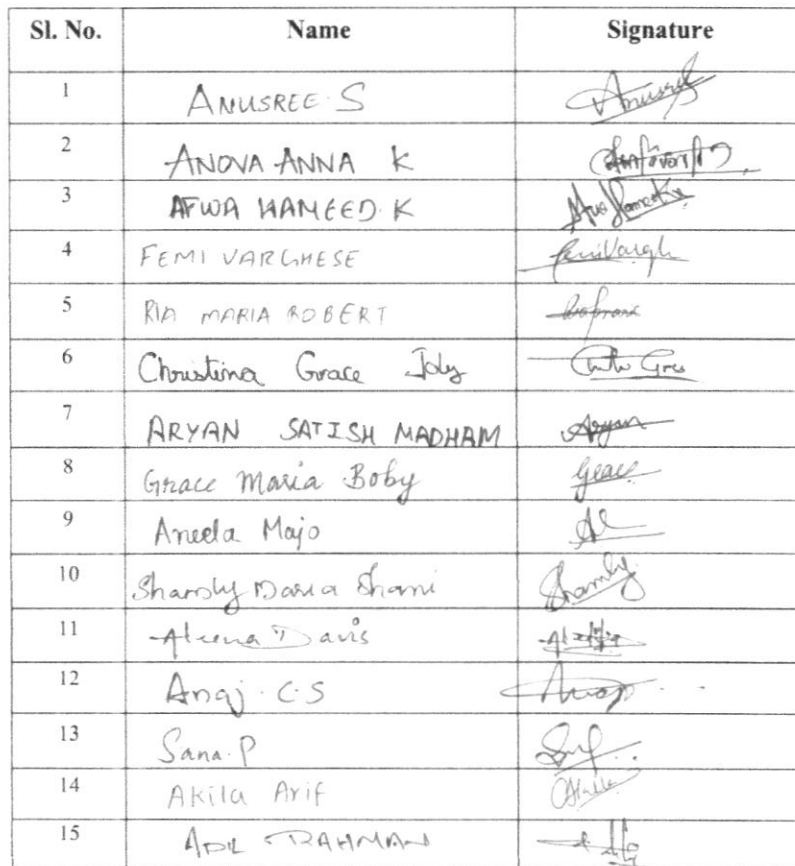 Sl. No. Name Signature
1 ANUSREE. S Anusree
2 ANOVA ANNA K
3 AFWA HAMEED. K
4 FEMI VARGHESE Femi Vargh
5 RIA MARIA ROBERT
6 Christina Grace Joly
7 ARYAN SATISH MADHAM Aryan
8 Grace Maria Boby Grace
9 Aneeta Majo
10 Shamly Maria Shami Shamly
11 Aleena Davis
12 Anaj. C.S
13 Sana. P
14 Akila Arif
15 ADIL RAHMAN